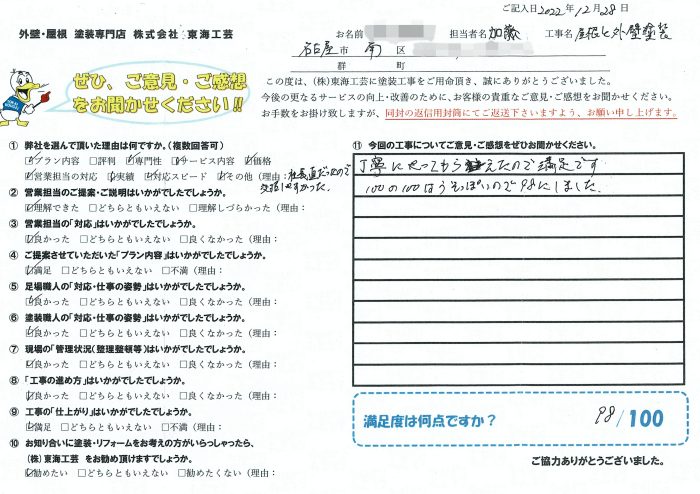 ご記入日2022年12月28日
外壁・屋根 塗装専門店 株式会社 東海工芸
お名前 担当者名 加藤 工事名 屋根と外壁塗装
名古屋市 南 区
群 町
ぜひ、ご意見・ご感想
をお聞かせください!!
この度は、(株)東海工芸に塗装工事をご用命頂き、誠にありがとうございました。
今後の更なるサービスの向上・改善のために、お客様の貴重なご意見・ご感想をお聞かせください。
お手数をお掛け致しますが、同封の返信用封筒にてご返送下さいますよう、お願い申し上げます。
① 弊社を選んで頂いた理由は何ですか。(複数回答可)
☑プラン内容 □評判 ☑専門性 ☑サービス内容 ☑価格
☑営業担当の対応 ☑実績 ☑対応スピード ☑その他(理由:社長直だったので
交渉しやすかった。
② 営業担当のご提案・ご説明はいかがでしたでしょうか。
☑理解できた □どちらともいえない □理解しづらかった(理由:
③ 営業担当の「対応」はいかがでしたでしょうか。
☑良かった □どちらともいえない □良くなかった(理由:
④ ご提案させていただいた「プラン内容」はいかがでしたでしょうか。
☑満足 □どちらともいえない □不満(理由:
⑤ 足場職人の「対応・仕事の姿勢」はいかがでしたでしょうか。
☑良かった □どちらともいえない □良くなかった(理由:
⑥ 塗装職人の「対応・仕事の姿勢」はいかがでしたでしょうか。
☑良かった □どちらともいえない □良くなかった(理由:
⑦ 現場の「管理状況(整理整頓等)はいかがでしたでしょうか。
☑良かった □どちらともいえない □良くなかった(理由:
⑧ 「工事の進め方」はいかがでしたでしょうか。
☑良かった □どちらともいえない □良くなかった(理由:
⑨ 工事の「仕上がり」はいかがでしたでしょうか。
☑満足 □どちらともいえない □不満(理由:
⑩ お知り合いに塗装・リフォームをお考えの方がいらっしゃったら、
(株)東海工芸 をお勧め頂けますでしょうか。
☑勧めたい □どちらともいえない □勧めたくない(理由:
⑪ 今回の工事についてご意見・ご感想をぜひお聞かせください。
丁寧にやってもらえたので満足です
100の100はうそっぽいので98にしました。
満足度は何点ですか? 98/100
ご協力ありがとうございました。